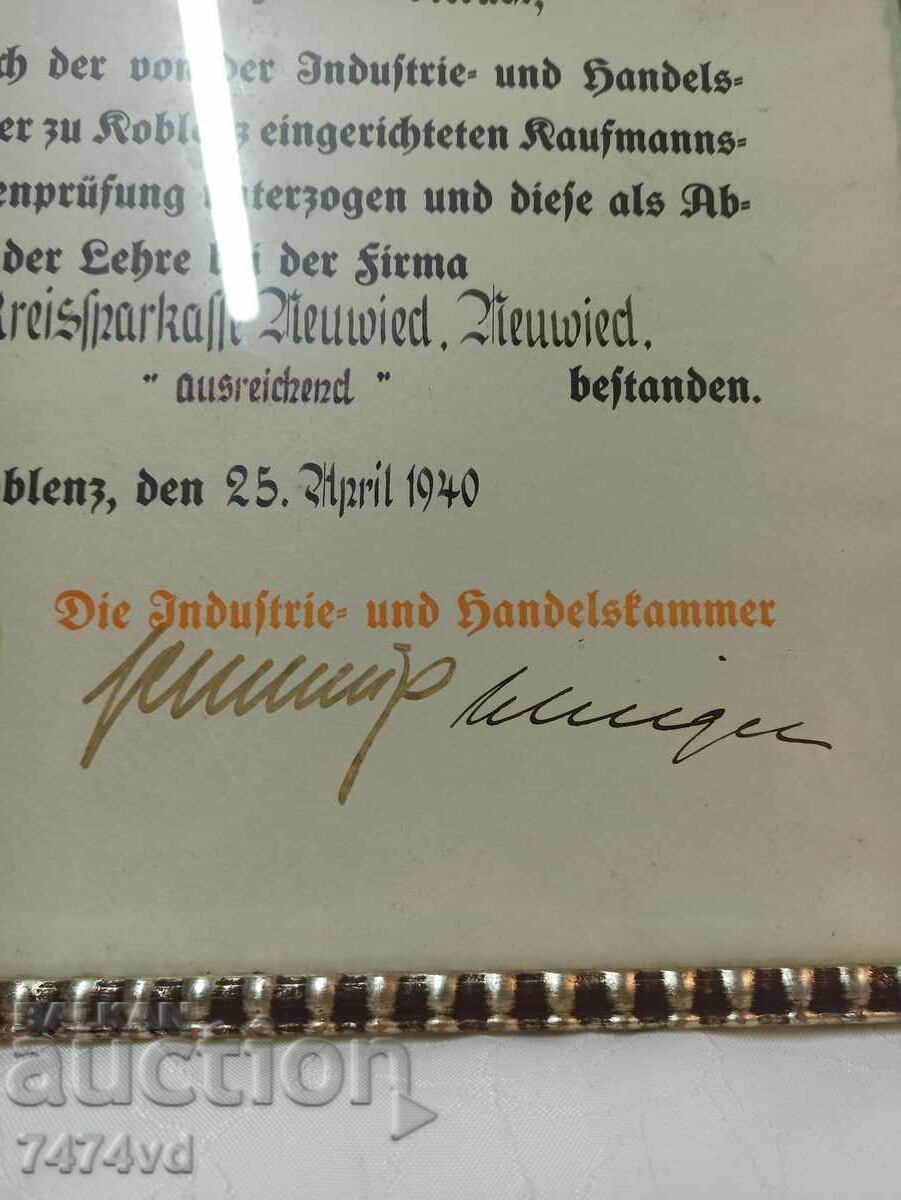 ch der von der Industrie- und Handels-
er zu Koblenz eingerichteten Kaufmanns-
enprüfung unterzogen und diese als Ab-
der Lehre bei der Firma
Kreissparkasse Neuwied, Neuwied.
" ausreichend " bestanden.
blenz, den 25. April 1940
Die Industrie- und Handelskammer
BALKAN
auction
7474vd